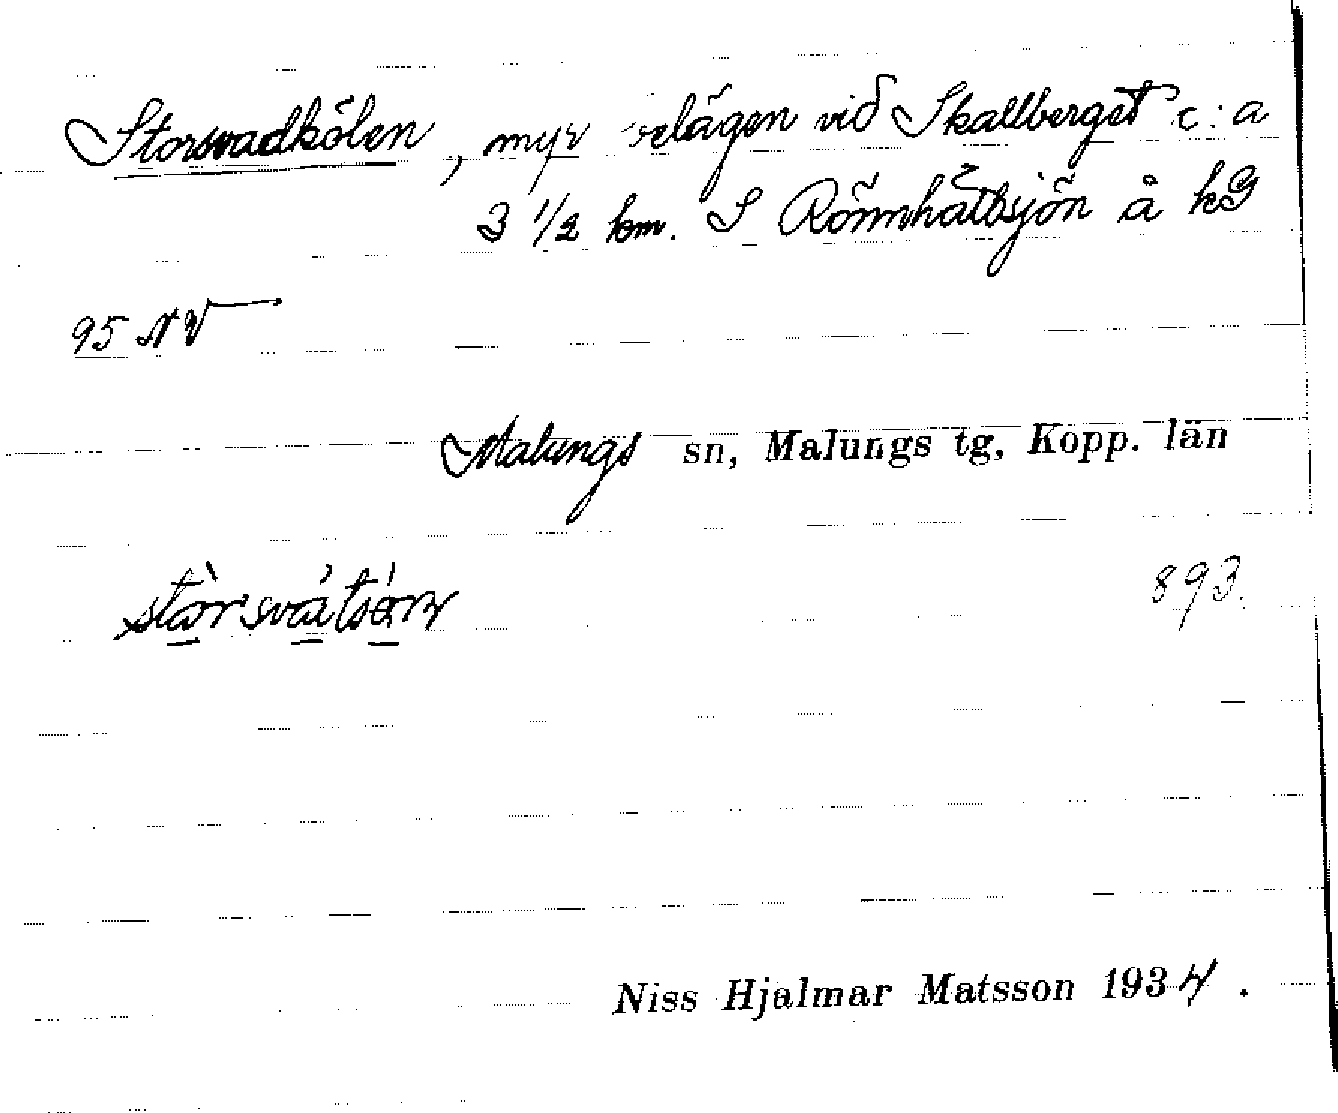 Storsvadkölen, myr belägen vid Skallberget c:a
3 1/2 km. S Rönnhåtbsjön å kG
95 NV
Malungs sn, Malungs tg, Kopp. län
893.
Niss Hjalmar Matsson 1934.